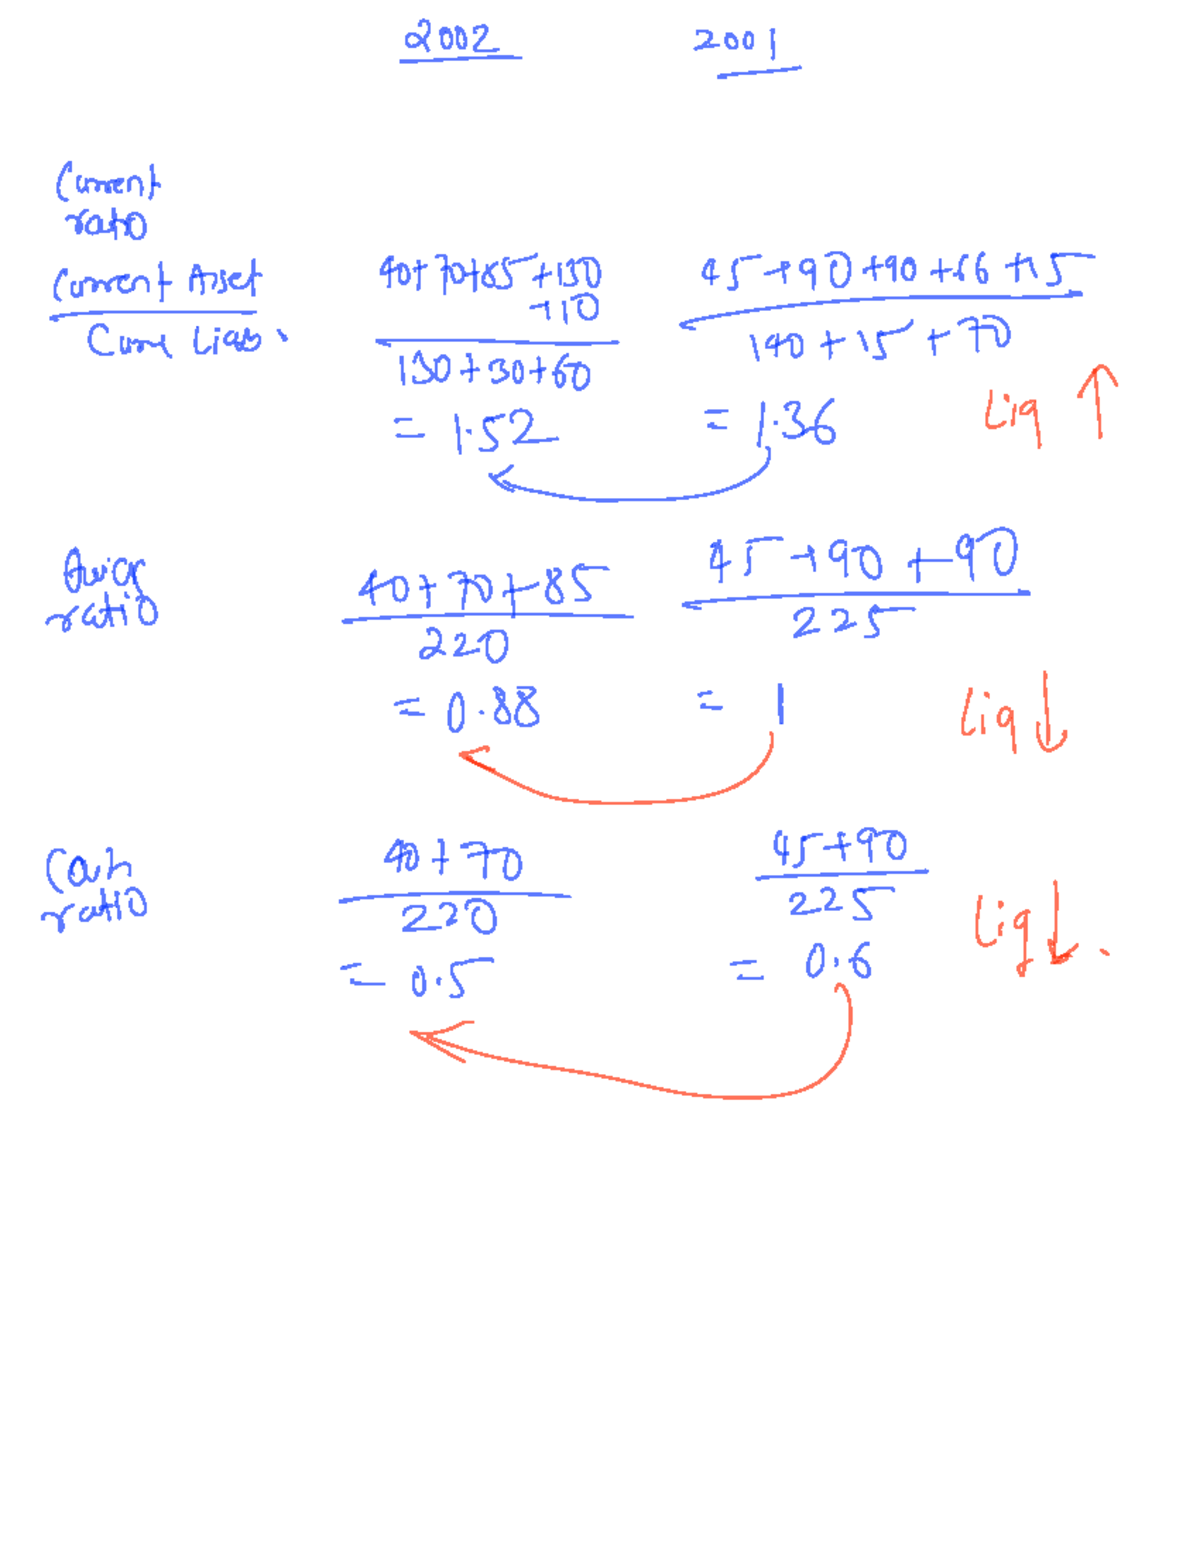 2002 2001
Current
ratio
Current Asset 40+70+85+130 45+90+90+66+15
+10
Curre Liab. 130+30+60 140+15+70
= 1.52 = 1.36 Liq ↑
Quick
ratio
40+70+85 45+90+90
220 225
= 0.88 = 1 Liq ↓
Cash
ratio
40+70 45+90
220 225
= 0.5 = 0.6 Liq ↓.